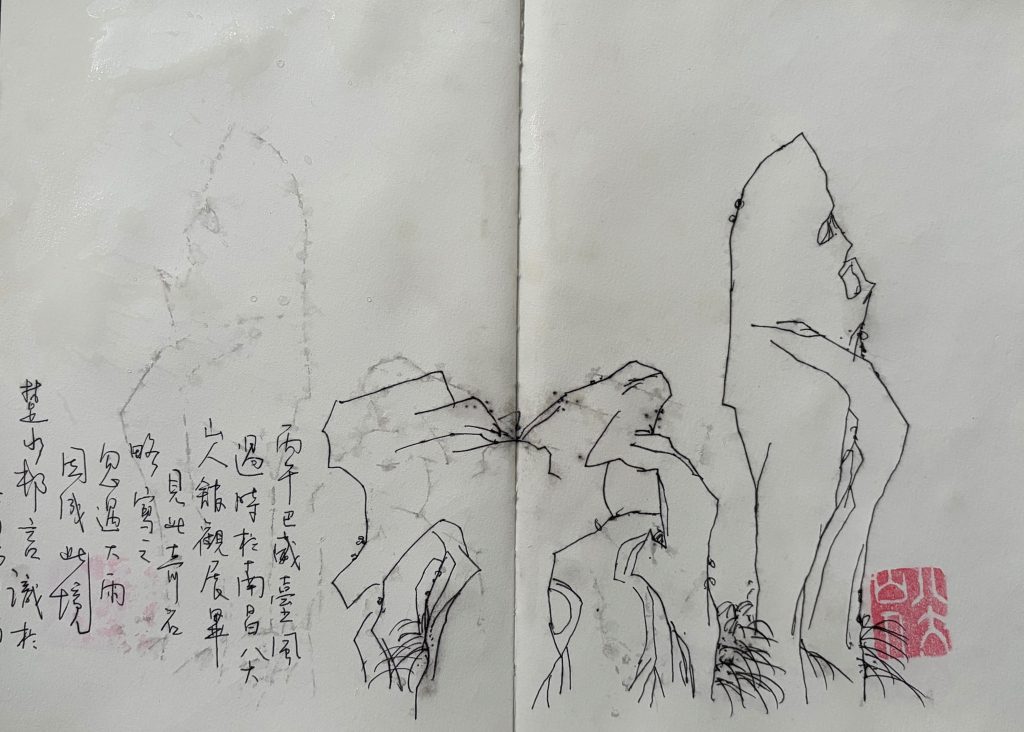 丙午巴威臺風
過時於南昌八大
山人館觀展畢
見此奇石
略寫之
忽遇大雨
因成此境
楚水邨言識於
八大山人